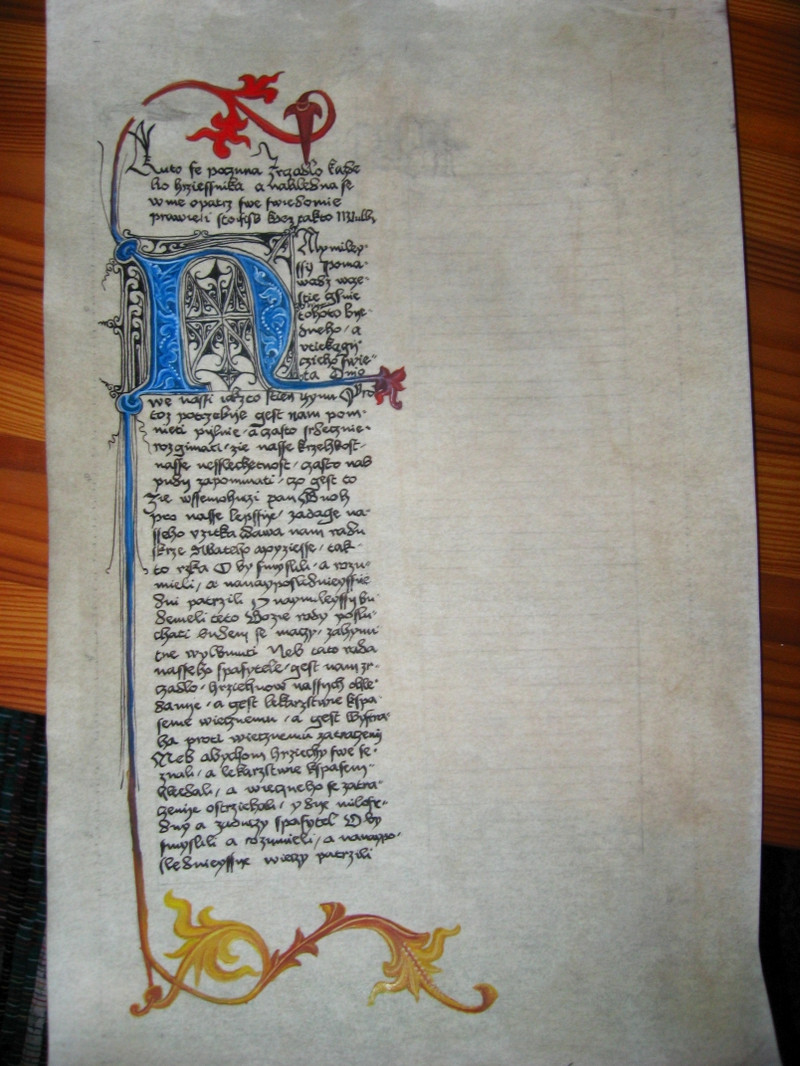 Tuto se poczina Zrzadlo kazde
ho hrziessnika a nahledna se
w me opatrz swe swiedomie
prawieli stogiss bez takto Mluw
Naymiley
ssy poma
wadz wge
stie gsme
tohoto bie
dneho / a
vtiekagi
cziho swie
ta Omo
we nassi iakzco stien hynu Pro
toz potrzebne gest nam pom
nieti pilnie / a czasto srdecznie
rozgimati / zie nasse krzehkost /
nasse nesslechetnost / czasto nas
pudij zapomenuti / czo gest to
Zie wssemohuczi pan Buoh
pro nasse lepssie / zadage na
sseho vzitka dawa nam radu
skrze Swateho / tak
to rzka O by smyslili / a rozu
mieli / a nanayposlednieyssie
dni patrzili O naymileyssy bu
demeli teto Bozie rady poslu
chati budem se moczy / zahynu
tie wystrzieczi Neb tato rada
nasseho spasytele / gest nam zr
czadlo / hrziechuow nassych ohle
danie / a gest lekarzstwie k spa
senie wiecznemu / a gest wystra
ha proti wiecznemu zatraczenij
Neb abychom hrziechy swe se
znali / a lekarzstwie k spaseni
hledali / a wieczneho se zatra
czenie ostrziehali / y die milose
dny a zaduczy spasytel O by
smyslili a rozumieli / a nanaypo
slednieyssie wieczy patrzili